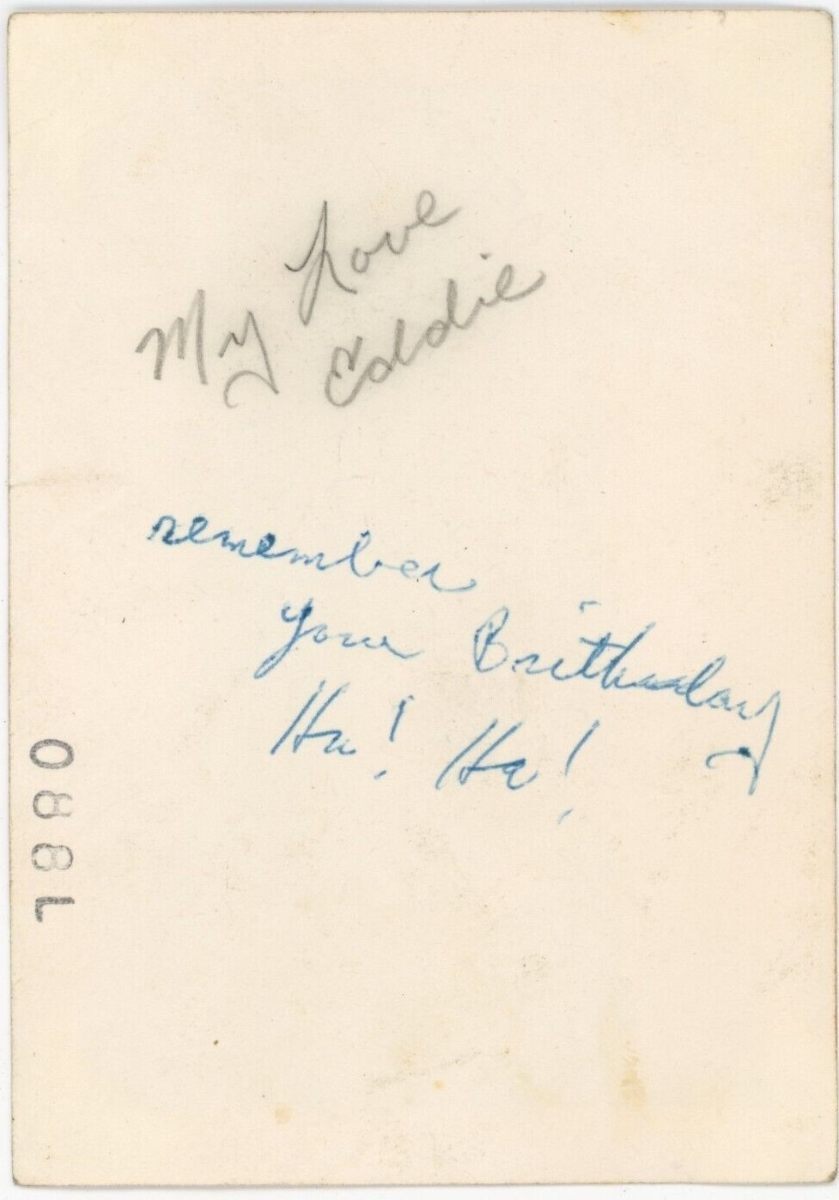 My Love
Eddie
remember
your Brithday
Ha! Ha!
7880